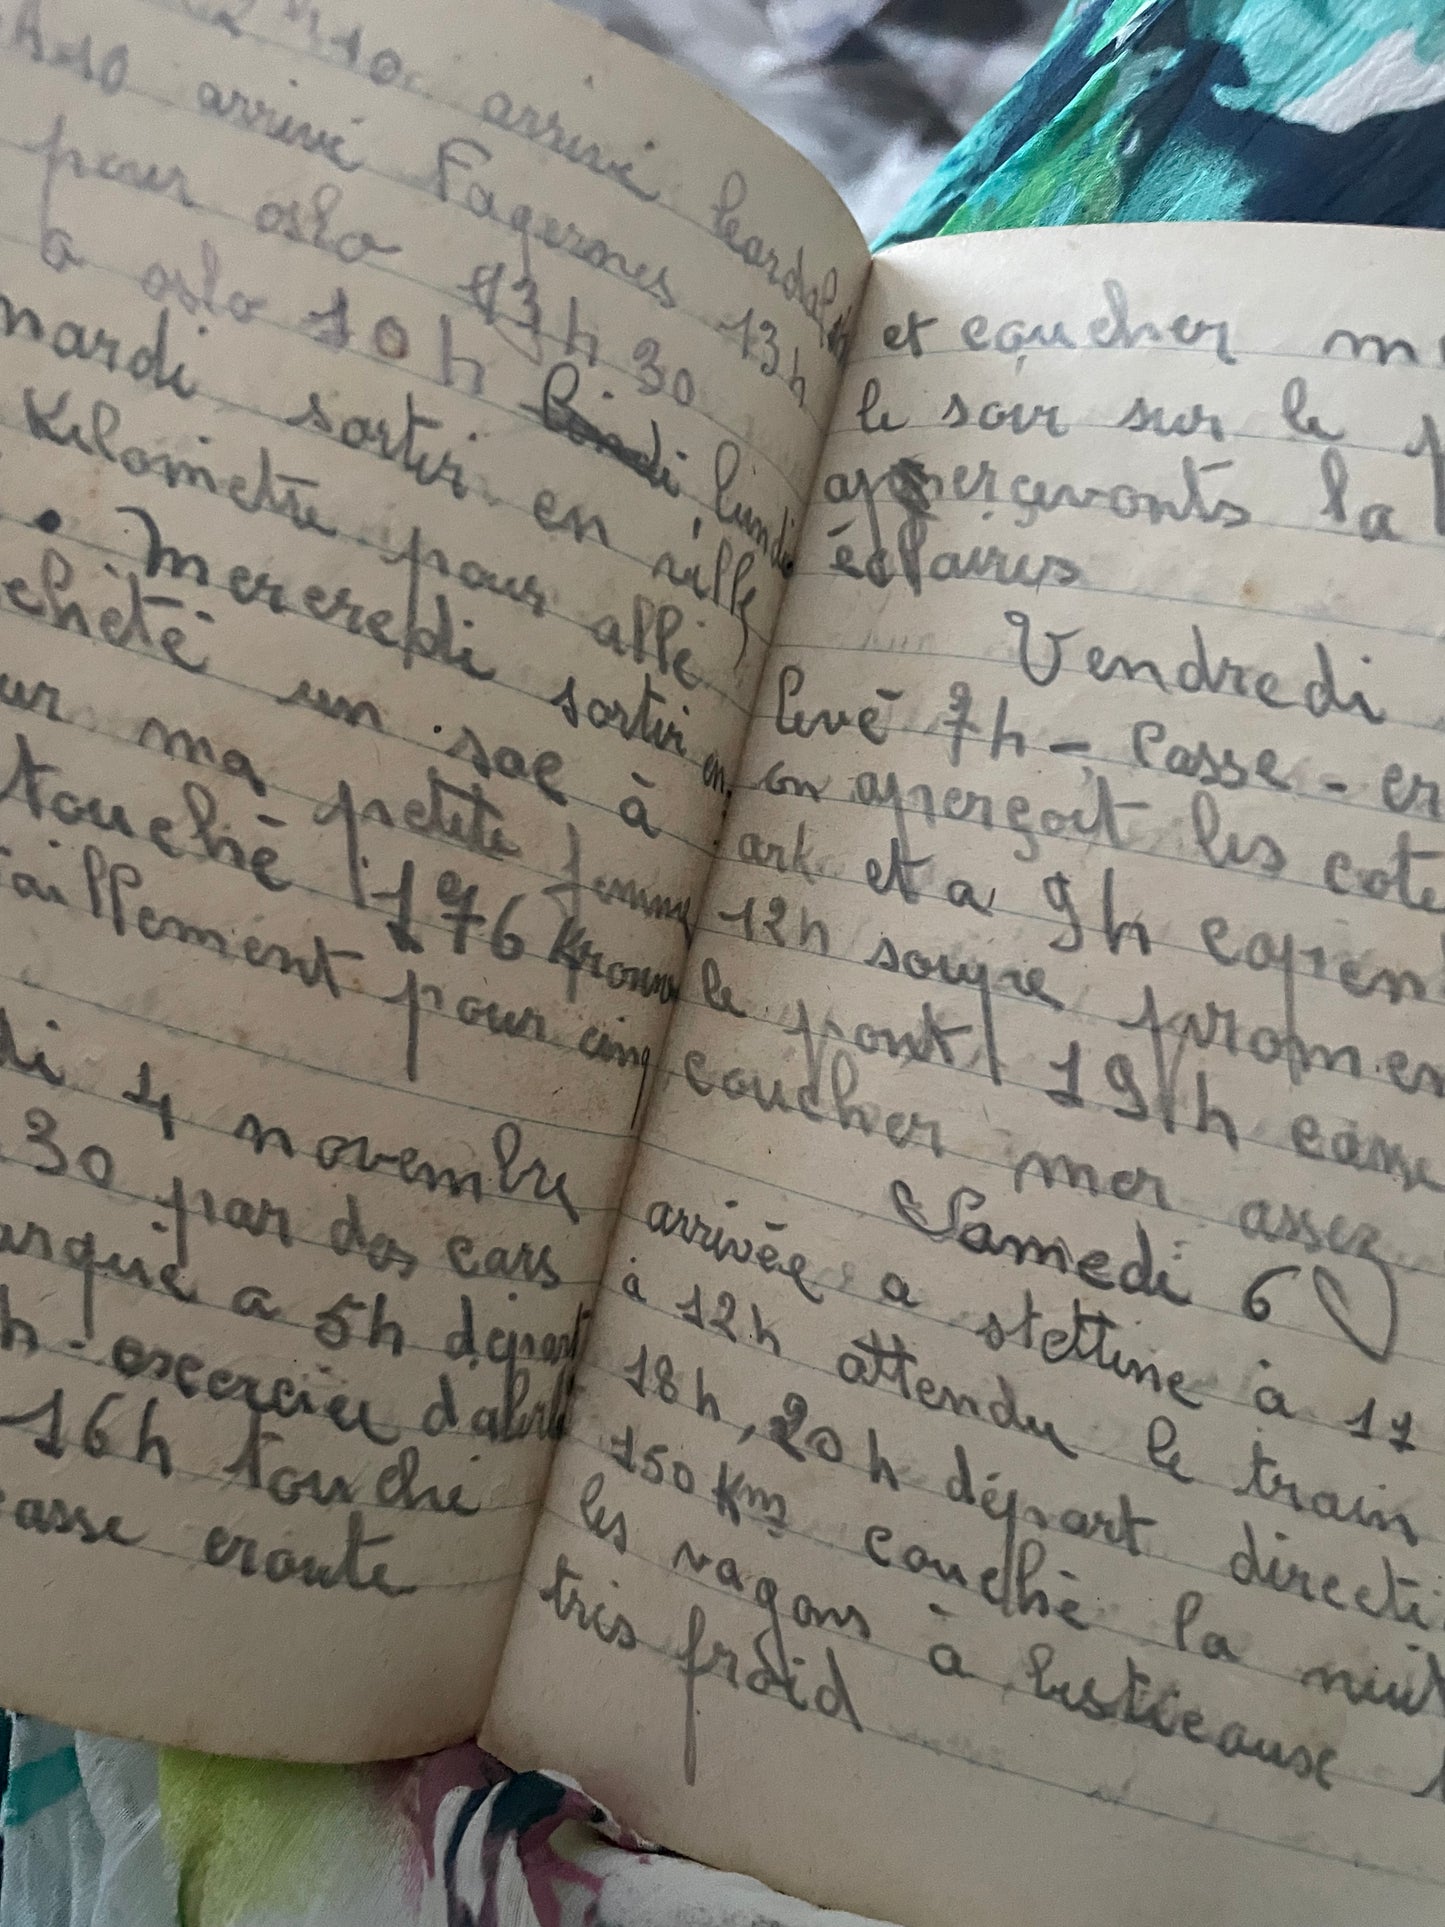 arrivé
h10 arrivé Fagernes 13h
pour oslo 13h30
a oslo 10h lundi
mardi sortir en ville
Kilometre pour allé
. Mercredi sortir en
cheté un sac à
ur ma petite femme
touché 176 Krones
aillement pour cinq
di 4 novembre
30 par des cars
arquie a 5h départ
h. excercice d'alerte
16h touché
casse eroute
et coucher
le soir sur le
apperçevonts la
éclaires
Vendredi
levé 7h - Casse - cr
on aperçoit les cote
ark et a 9h copen
12h soupe promen
le pont 19h casse
coucher mer assez
Samedi 6
arrivée a stettine à 11
à 12h attendu le train
18h, 20h départ directi
150 Km couché la nuit
les vagons à bestieause
tres froid